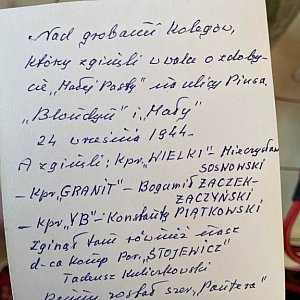 Nad grobami Kolegów,
którzy zginęli w walce o zdoby-
cie „Małej Pasty" na ulicy Piusa.
„Blondyn" i „Mały"
24 września 1944.
A zginęli: kpr „WIELKI" - Mieczysław
SOSNOWSKI
- kpr „GRANIT" - Bogumił ZACZEK-
ZACZYŃSKI
- kpr „YB" - Konstanty PIĄTKOWSKI
Zginął tam również nasz
d-ca komp. Por. „STOJEWICZ"
Tadeusz
Ranny został szer. „Pantera"